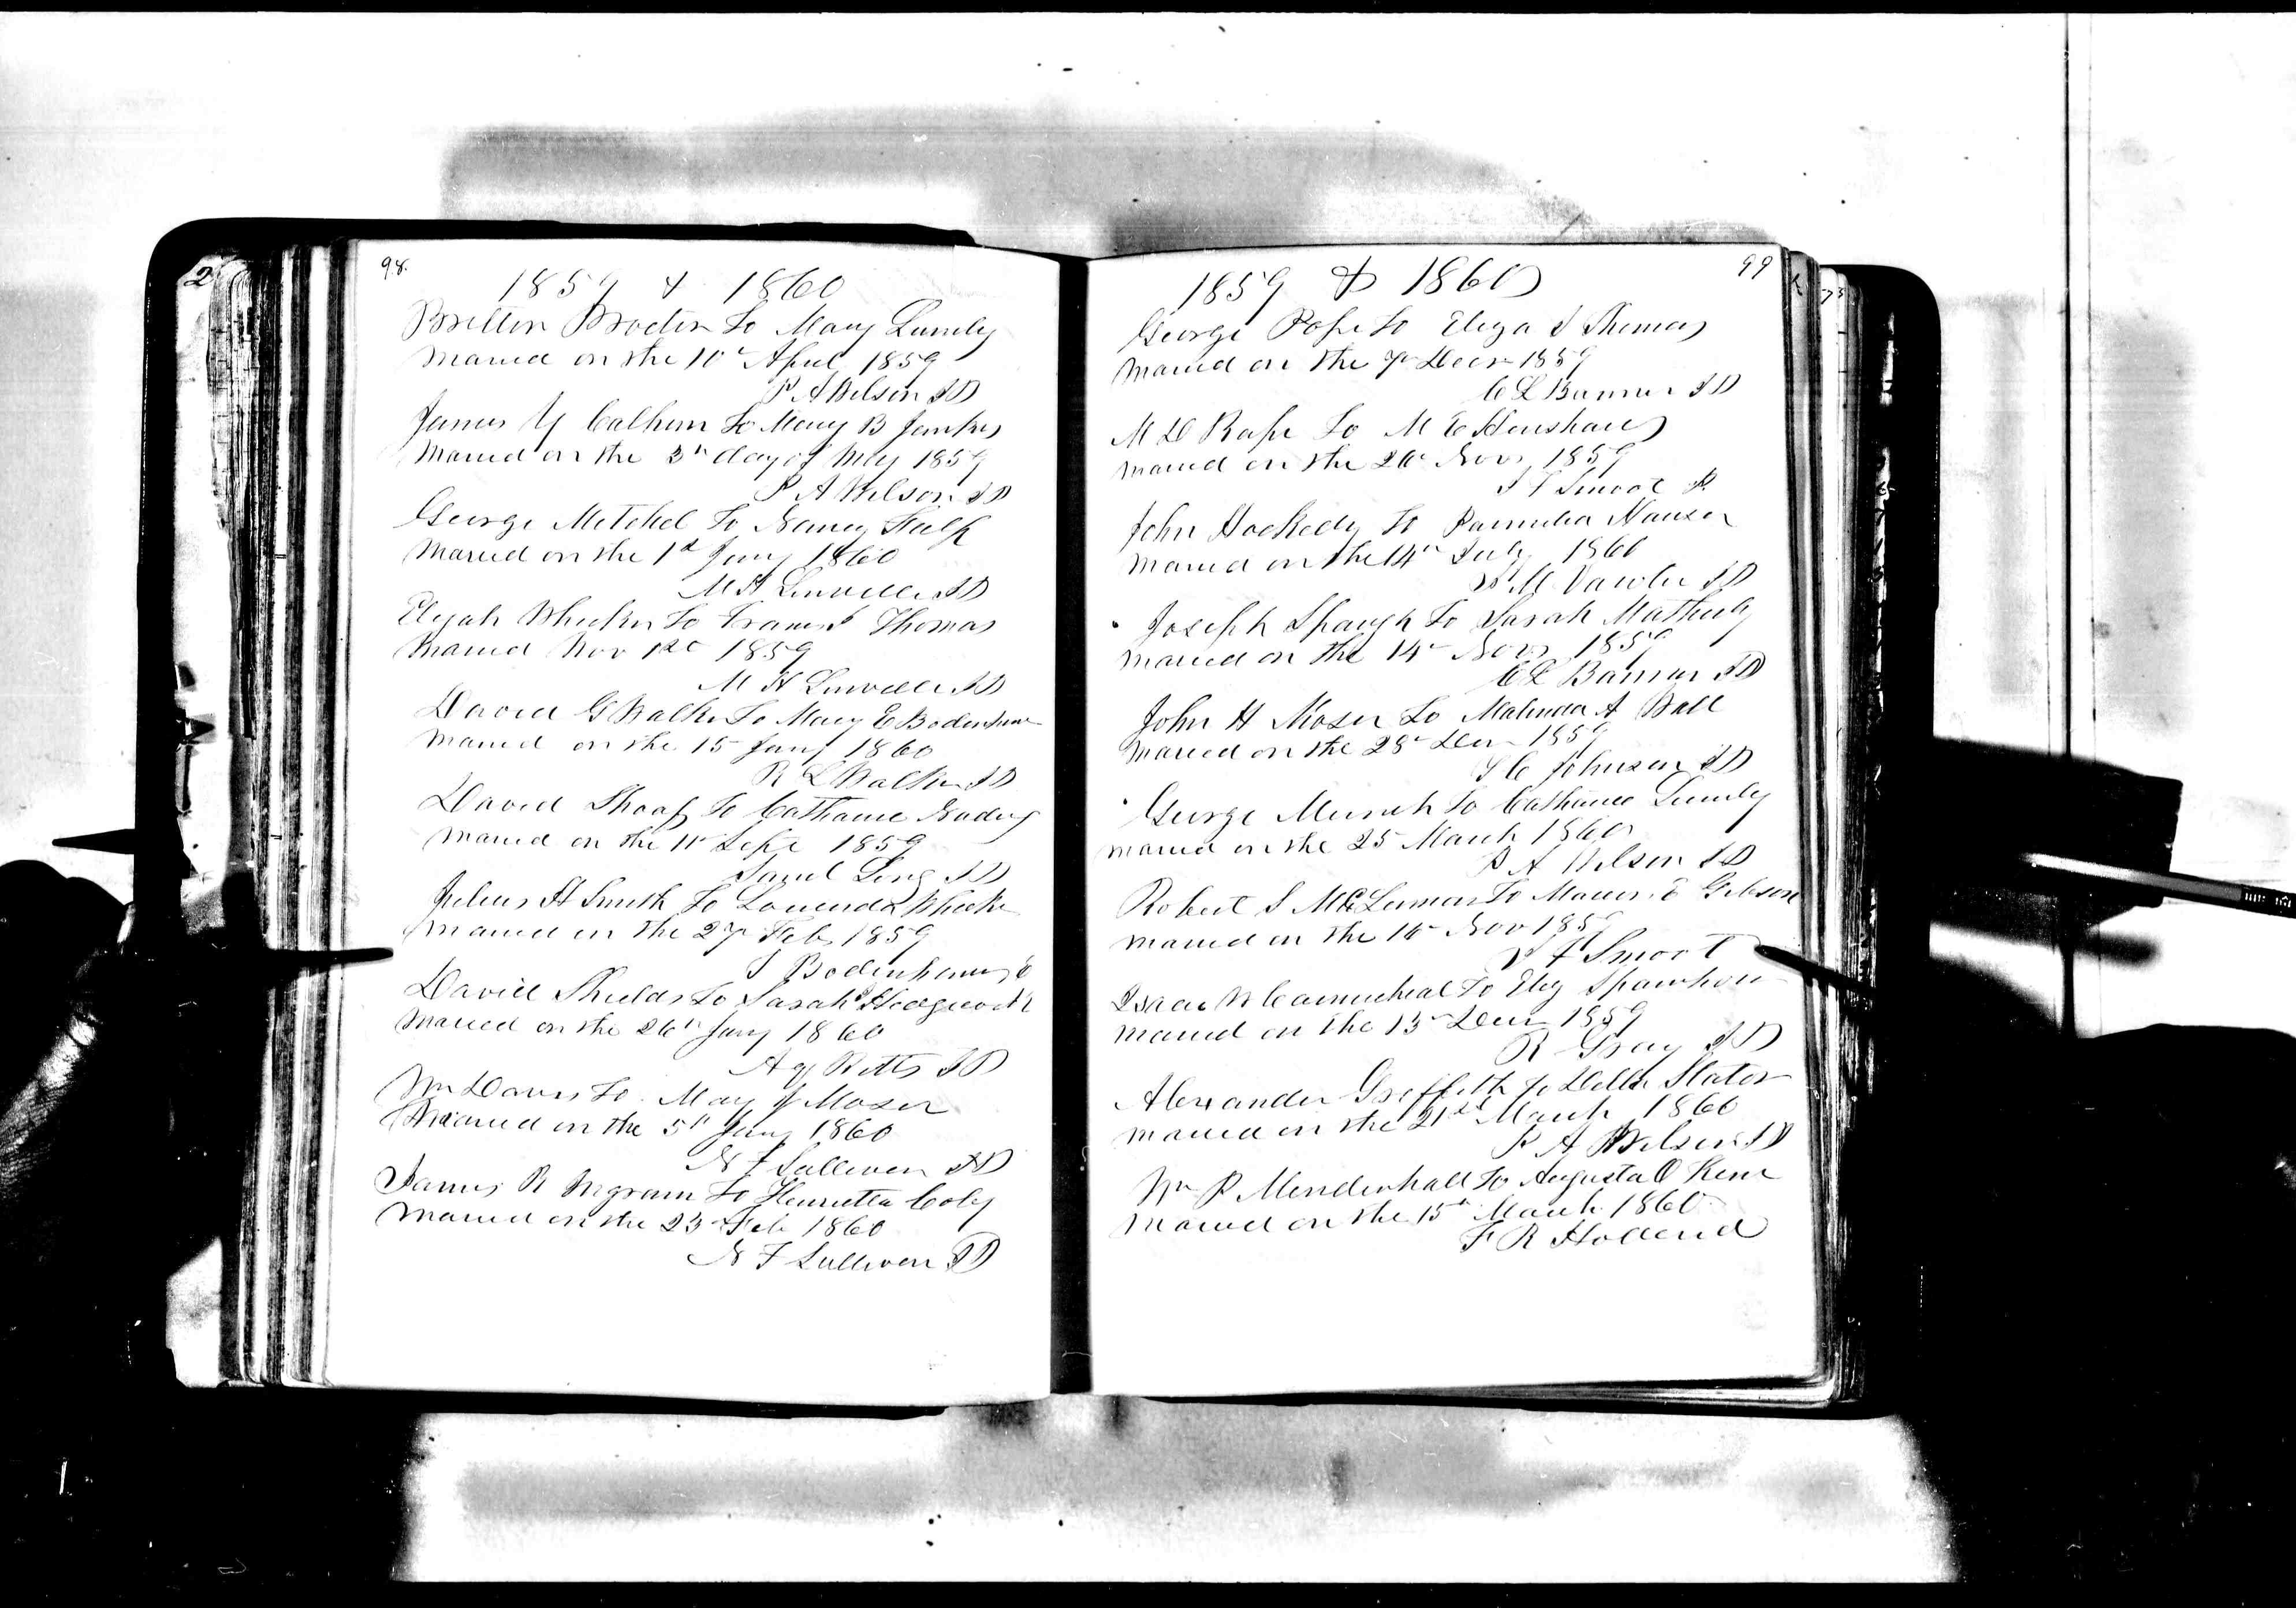 98.
1859 & 1860
Britton Procter To Mary Lumly
Maried on the 10th April 1859
P A Wilson JP
James Y Calhoun To Mary B Jenkins
Maried on the 3rd day of May 1859
P A Wilson JP
George Mitchel To Nancy Fulk
Maried on the 1st Jany 1860
M H Linville JP
Elijah Wheeler To Thomas
Maried Nov 1859
M H Linville JP
David G Walker To Mary E Bodenhamer
Maried on the 15 Jany 1860
R L Walker JP
David Shoaf To Catharine
Maried on the 11th Sept 1859
Saml Ling JP
Julius A Smith To Louenda Wheeler
Maried on the 27 Feb 1859
Bodenhamer
David Shields To Sarah Hedgecock
Maried on the 26th Jany 1860
Betts JP
Wm Davis To Mary J Moser
Maried on the 5th Jany 1860
N F Sulliven JP
James R Ingram To Henrietta Coley
Maried on the 23 Feb 1860
N F Sulliven JP
99
1859 & 1860
George Pope To Eliza S Thomas
Maried on the 7th Decr 1859
C L Banner JP
M D Rape To M E Henshaw
Maried on the Novr 1859
Smoot
John Hockedy To Parmelia Hauser
Maried on the 14th July 1860
JP
Joseph Spaugh To Sarah
Maried on the 14th Novr 1859
C L Banner JP
John H Moser To Malinda A Ball
Maried on the 28th Decr 1859
Johnson JP
George Mursh To Catharine Lumly
Maried on the 25 March 1860
P A Wilson JP
Robert S McLemer To E Gibson
Maried on the Nov 1859
Smoot
Isaac W Carmicheal To Elizy
Maried on the 13th Decr 1859
R Gray JP
Alexander Griffith To Della Slator
Maried on the 21st March 1860
P A Wilson JP
Wm P Mendenhall To Augusta
Maried on the 15th March 1860
F R Holland